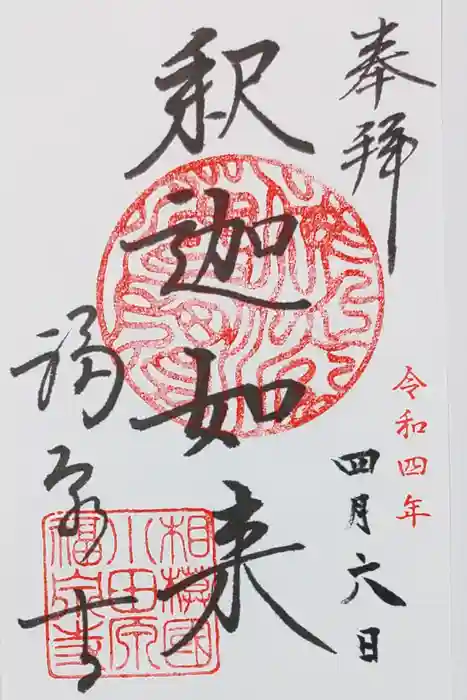 奉拝
令和四年
四月六日
釈迦如来
福泉寺
相模国
小田原
福泉寺